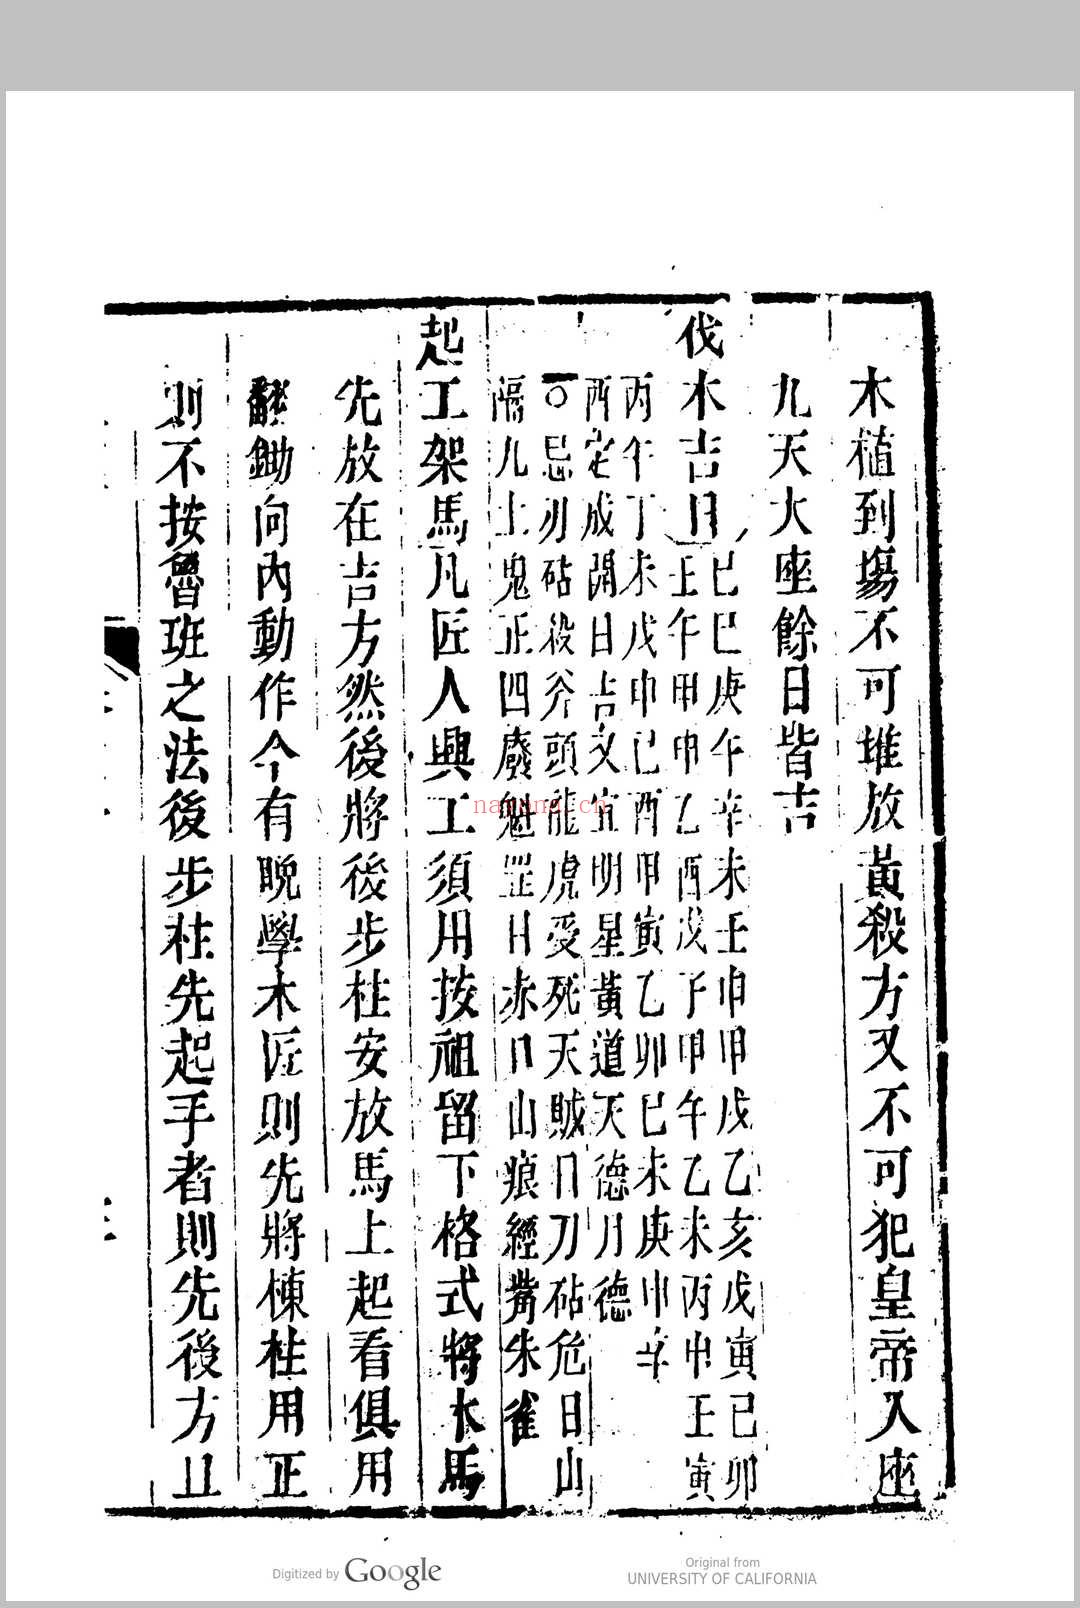 木植到塲不可堆放黃殺方又不可犯皇帝入座
九天大座餘日皆吉
伐木吉日
己巳庚午辛未壬申甲戌乙亥戊寅己卯
壬午甲申乙酉戊子甲午乙未丙申壬寅
丙午丁未戊申己酉甲寅乙卯己未庚申辛
酉定成開日吉又宜明星黃道天德月德
○忌刃砧殺斧頭龍虎受死天賊日刀砧危日山
隔九土鬼正四廢魁罡日赤口山痕經觜朱雀
起工架馬凡匠人興工須用按祖留下格式將木馬
先放在吉方然後將後步柱安放馬上起看俱用
翻鋤向內動作今有晚學木匠則先將棟柱用正
則不按魯班之法後步柱先起手者則先後方且
nayona.cn
Digitized by Google
Original from
UNIVERSITY OF CALIFORNIA